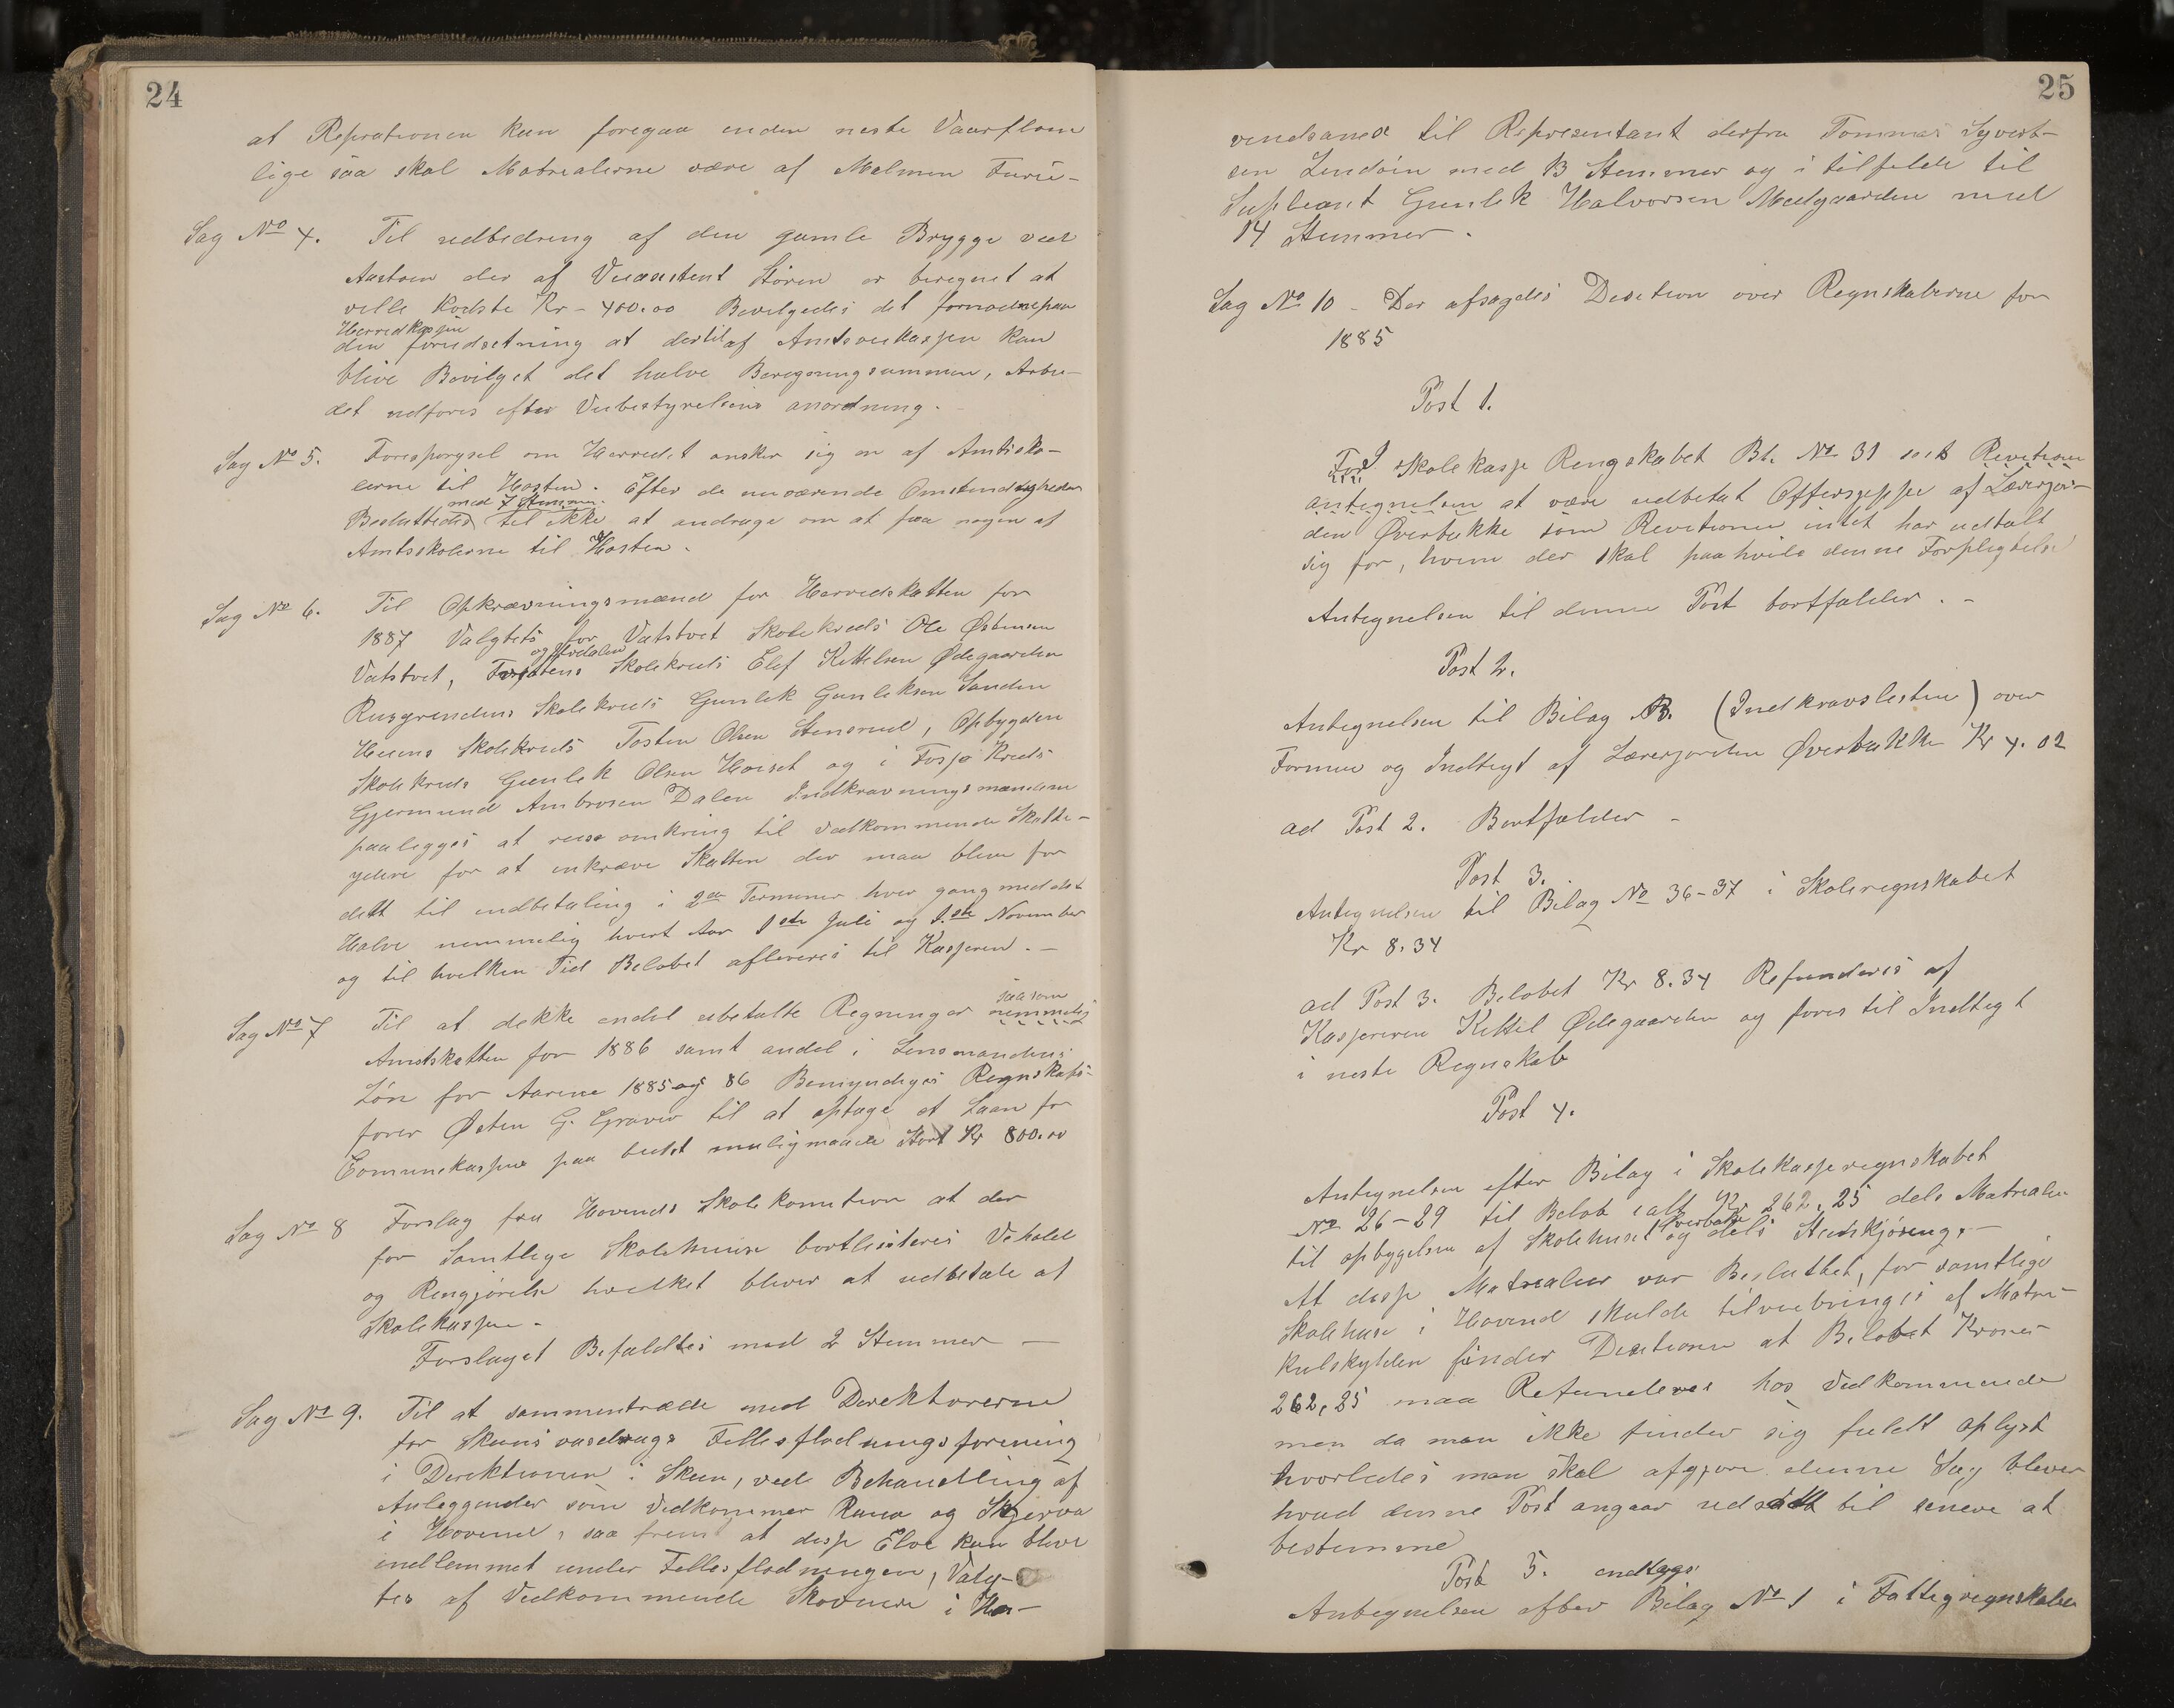 24
at Reprationen kan foregaa enden neste Vaarflom
lige saa skal Matrealerne være af Malmen Furu-
Sag No 4. Til udbedring af den gamle Brygge ved
Aastoen der af Veiassistent Støren er beregnet at
ville kodste Kr - 400.00 Bevilgedes det fornødne paa
Herredkassen
den forudsetning at dertil af Amtsveikassen kan
blive Bevilget det halve Beregningsummen, Arbei-
det udføres efter Veibestyrelsens anordning.
Sag No 5. Foresporgsel om Herredet ønsker sig en af Amtssko-
lerne til Høsten. Efter de nuværende Omstendigheder
med 7 Stemmer.
Besluttedes til ikke at andrage om at faa nogen af
Amtsskolerne til Høsten.
Sag No 6. Til Opkrævningsmænd for Herredskatten for
1887 Valgtes for Vatstvet Skolekreds Ole Østensen
og Jordalen
Vatstvet, Skolekreds Elef Kittelsen Ødegaarden
Rusgrendens Skolekreds Gunlek Gunleksen Sanden
Skolekreds Tosten Olsen Stensrud, Opbygden
Skolekreds Gunlek Olsen Hoiset og i Fosso Kreds
Gjermund Ambrosen Dalen Indkravningsmændene
paalegges at reise omkring til vedkommende Skatte-
ydere for at inkræve Skatten der maa blive for
delt til indbetaling i 2de Terminer hver gang med det
Halve nemmelig hvert Aar 1ste Juli og 1.ste November
og til hvelken Tid Beløbet afleveres til Kasseren. -
saasom
Sag No 7 Til at dekke endel ubetalte Regninger nemmelig
Amtskatten for 1886 samt andel i Lensmandens
Løn for Aarene 1885 og 86 Bemyndiges Regnskabs-
fører Østen G. Graver til at optage et Laan for
Comunekassen paa bedst muligmaade Stort Kr 800.00
Sag No 8 Forslag fra Hovinds Skolekomition at der
for Samtlige Skolehuse bortlisiteres Vehold
og Rengjørelse hvelket bliver at udbetale af
Skolekassen -
Forslaget Befaldtes med 2 Stemmer —
Sag No 9. Til at sammentræde med Derektorerne
for Skiens vasdrags Fellesflødningsforening
i Derektionen i Skien, ved Behandling af
Anleggender som Vedkommer Raua og Skjerva
i Hovind, saa fremt at disse Elve kan blive
indlemmet under Fellesflødningen, Valg-
tes af Vedkommende Skoveiere i Ho-
25
vindsaned til Representant derfra Tommas Syvert-
sen Lendoin med 13 Stemmer og i tilfelde til
Supleant Gunlek Halvorsen Medgaarden med
14 Stemmer.
Sag No 10 - Der afsagdes Desition over Regnskaberne for
1885
Post 1.
For I Skolekasse Rengskabet Bl. No 31 Revitions
antegnelsen at være udbetat Offersgeppe af Lærerjor-
den Øverbøkke som Revitionen intet har udtalt
sig for, hvem der skal paahvile denne Forpligtelse
Antegnelsen til denne Post bortfalder. -
Post 2.
Antegnelsen til Bilag B. (Indkravslesten) over
Formue og Indtegt af Lærerjorden Øverbøkke Kr 4.02
ad Post 2. Bortfalder -
Post 3.
Antegnelsen til Bilag No 36-37 i Skoleregnskabet
Kr 8.34
ad Post 3. Beløbet Kr 8.34 Refunderes af
Kassereren Kittil Ødegaarden og føres til Indtegt
i neste Regnskab
Post 4.
Antegnelsen efter Bilag i Skolekasseregnskabet
No 26-29 til Beløb ialt Kr 262,25 dels Matrealer
Øverbøke
til opbygelsen af Skolehuset og dels Stedskjøring. -
At disse Matrealer var Besluttet, for samtlige
Skolehuse i Hovind skulde tilveiebringes af Matri-
kulskylden finder Desitionen at Beløbet Kroner
262,25 maa Refunderes hos Vedkommende
men da man ikke finder sig fuldt oplyst
hvorledes man skal afgjøre denne Sag bliver
hvad denne Post angaar udsatt til senere at
bestemme
Post 5. endtegs
Antegnelsen efter Bilag No 1 i Fattigregnskabet